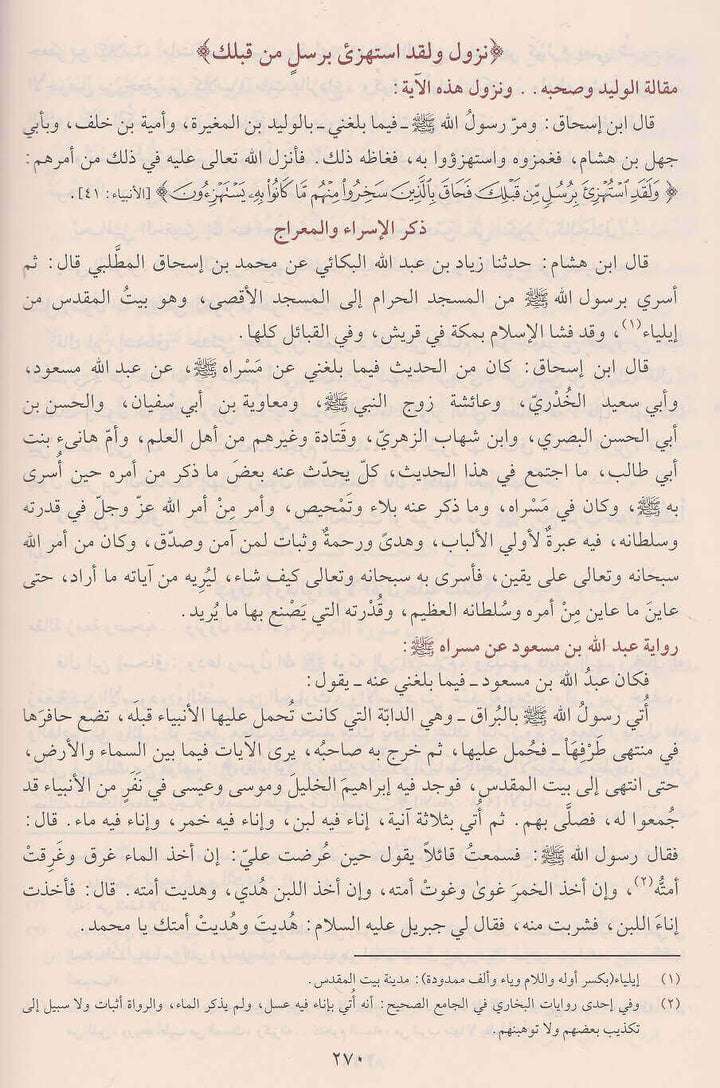 ﴿نزول ولقد استهزئ برسلٍ من قبلك﴾
مقالة الوليد وصحبه . . ونزول هذه الآية:
قال ابن إسحاق: ومرّ رسولُ الله ﷺ ـ فيما بلغني ـ بالوليد بن المغيرة، وأمية بن خلف، وبأبي
جهل بن هشام، فغمزوه واستهزؤوا به، فغاظه ذلك. فأنزل الله تعالى عليه في ذلك من أمرهم:
﴿ وَلَقَدِ ٱسْتُهْزِئَ بِرُسُلٍ مِّن قَبْلِكَ فَحَاقَ بِٱلَّذِينَ سَخِرُوا۟ مِنْهُم مَّا كَانُوا۟ بِهِۦ يَسْتَهْزِءُونَ ﴾ [الأنبياء: ٤١].
ذكر الإسراء والمعراج
قال ابن هشام: حدثنا زياد بن عبد الله البكائي عن محمد بن إسحاق المطَّلبي قال: ثم
أسري برسول الله ﷺ من المسجد الحرام إلى المسجد الأقصى، وهو بيتُ المقدس من
إيلياء(١)، وقد فشا الإسلام بمكة في قريش، وفي القبائل كلها.
قال ابن إسحاق: كان من الحديث فيما بلغني عن مَسْراه ﷺ، عن عبد اللهِ مسعود،
وأبي سعيد الخُدْريّ، وعائشة زوج النبي ﷺ، ومعاوية بن أبي سفيان، والحسن بن
أبي الحسن البصري، وابن شهاب الزهريّ، وقَتادة وغيرهم من أهل العلم، وأمّ هانىء بنت
أبي طالب، ما اجتمع في هذا الحديث، كلّ يحدّث عنه بعضَ ما ذكر من أمره حين أُسرى
به ﷺ، وكان في مَسْراه، وما ذكر عنه بلاء وتَمْحيص، وأمر مِنْ أمر الله عزّ وجلّ في قدرته
وسلطانه، فيه عبرةٌ لأولي الألباب، وهدىً ورحمةٌ وثبات لمن آمن وصدّق، وكان من أمر اللهِ
سبحانه وتعالى على يقين، فأسرى به سبحانه وتعالى كيف شاء، ليُرِيه من آياته ما أراد، حتى
عاينَ ما عاين مِنْ أمره وسُلطانه العظيم، وقُدْرته التي يَصْنع بها ما يُريد.
رواية عبد الله بن مسعود عن مسراه ﷺ:
فكان عبدُ الله بن مسعود ـ فيما بلغني عنه ـ يقول:
أُتي رسولُ الله ﷺ بالبُراق ـ وهي الدابّة التي كانت تُحمل عليها الأنبياء قبلَه، تضع حافرَها
في منتهى طَرْفِهَا ـ فحُمل عليها، ثم خرج به صاحبُه، يرى الآيات فيما بين السماء والأرض،
حتى انتهى إلى بيت المقدس، فوجد فيه إبراهيمَ الخليلَ وموسى وعيسى في نَفَرٍ من الأنبياء قد
جُمعوا له، فصلَّى بهم. ثم أُتي بثلاثة آنية، إناء فيه لبن، وإناء فيه خمر، وإناء فيه ماء. قال:
فقال رسول الله ﷺ: فسمعتُ قائلاً يقول حين عُرضت عليّ: إن أخذ الماء غرق وغَرِقتْ
أمتُّه(٢)، وإن أخذ الخمرَ غوىٰ وغوتْ أمته، وإن أخذ اللبن هُدي، وهديت أمته. قال: فأخذت
إناءَ اللبن، فشربت منه، فقال لي جبريل عليه السلام: هُديتَ وهُديتْ أمتك يا محمد.
(١) إيلياء(بكسر أوله واللام وياء وألف ممدودة): مدينة بيت المقدس.
(٢) وفي إحدى روايات البخاري في الجامع الصحيح: أنه أُتي بإناء فيه عسل، ولم يذكر الماء، والرواة أثبات ولا سبيل إلى
تكذيب بعضهم ولا توهينهم.
٢٧٠